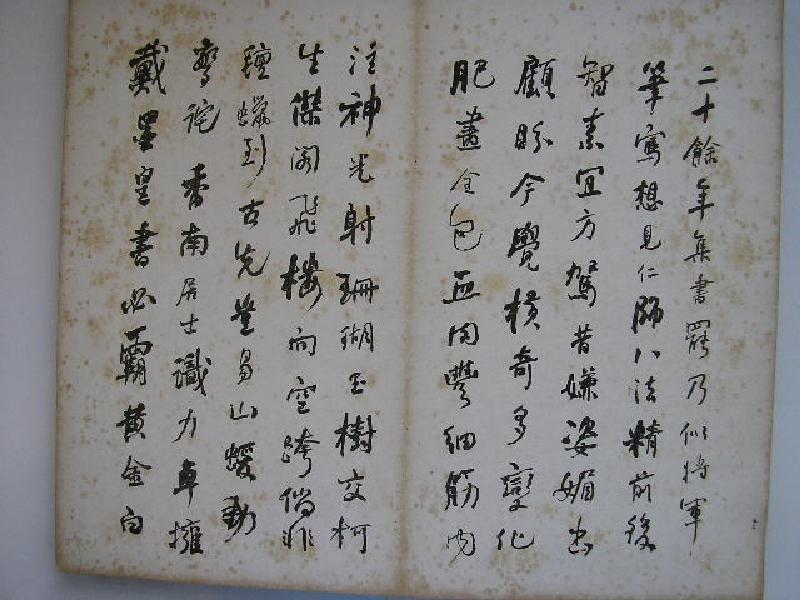 二十餘年集書羅乃似將軍
筆寫想見仁師八法精前後
智素宜方駕昔嫌姿媚出
顧盼今覺橫奇多變化
肥畫全包血肉豐細筋內
注神光射珊瑚玉樹交柯
生傑閣飛樓向空跨倘非
氈蠟到古先豈易山蝯動
驚詫香南居士識力卓擁
戴星皇書必霸黃金白